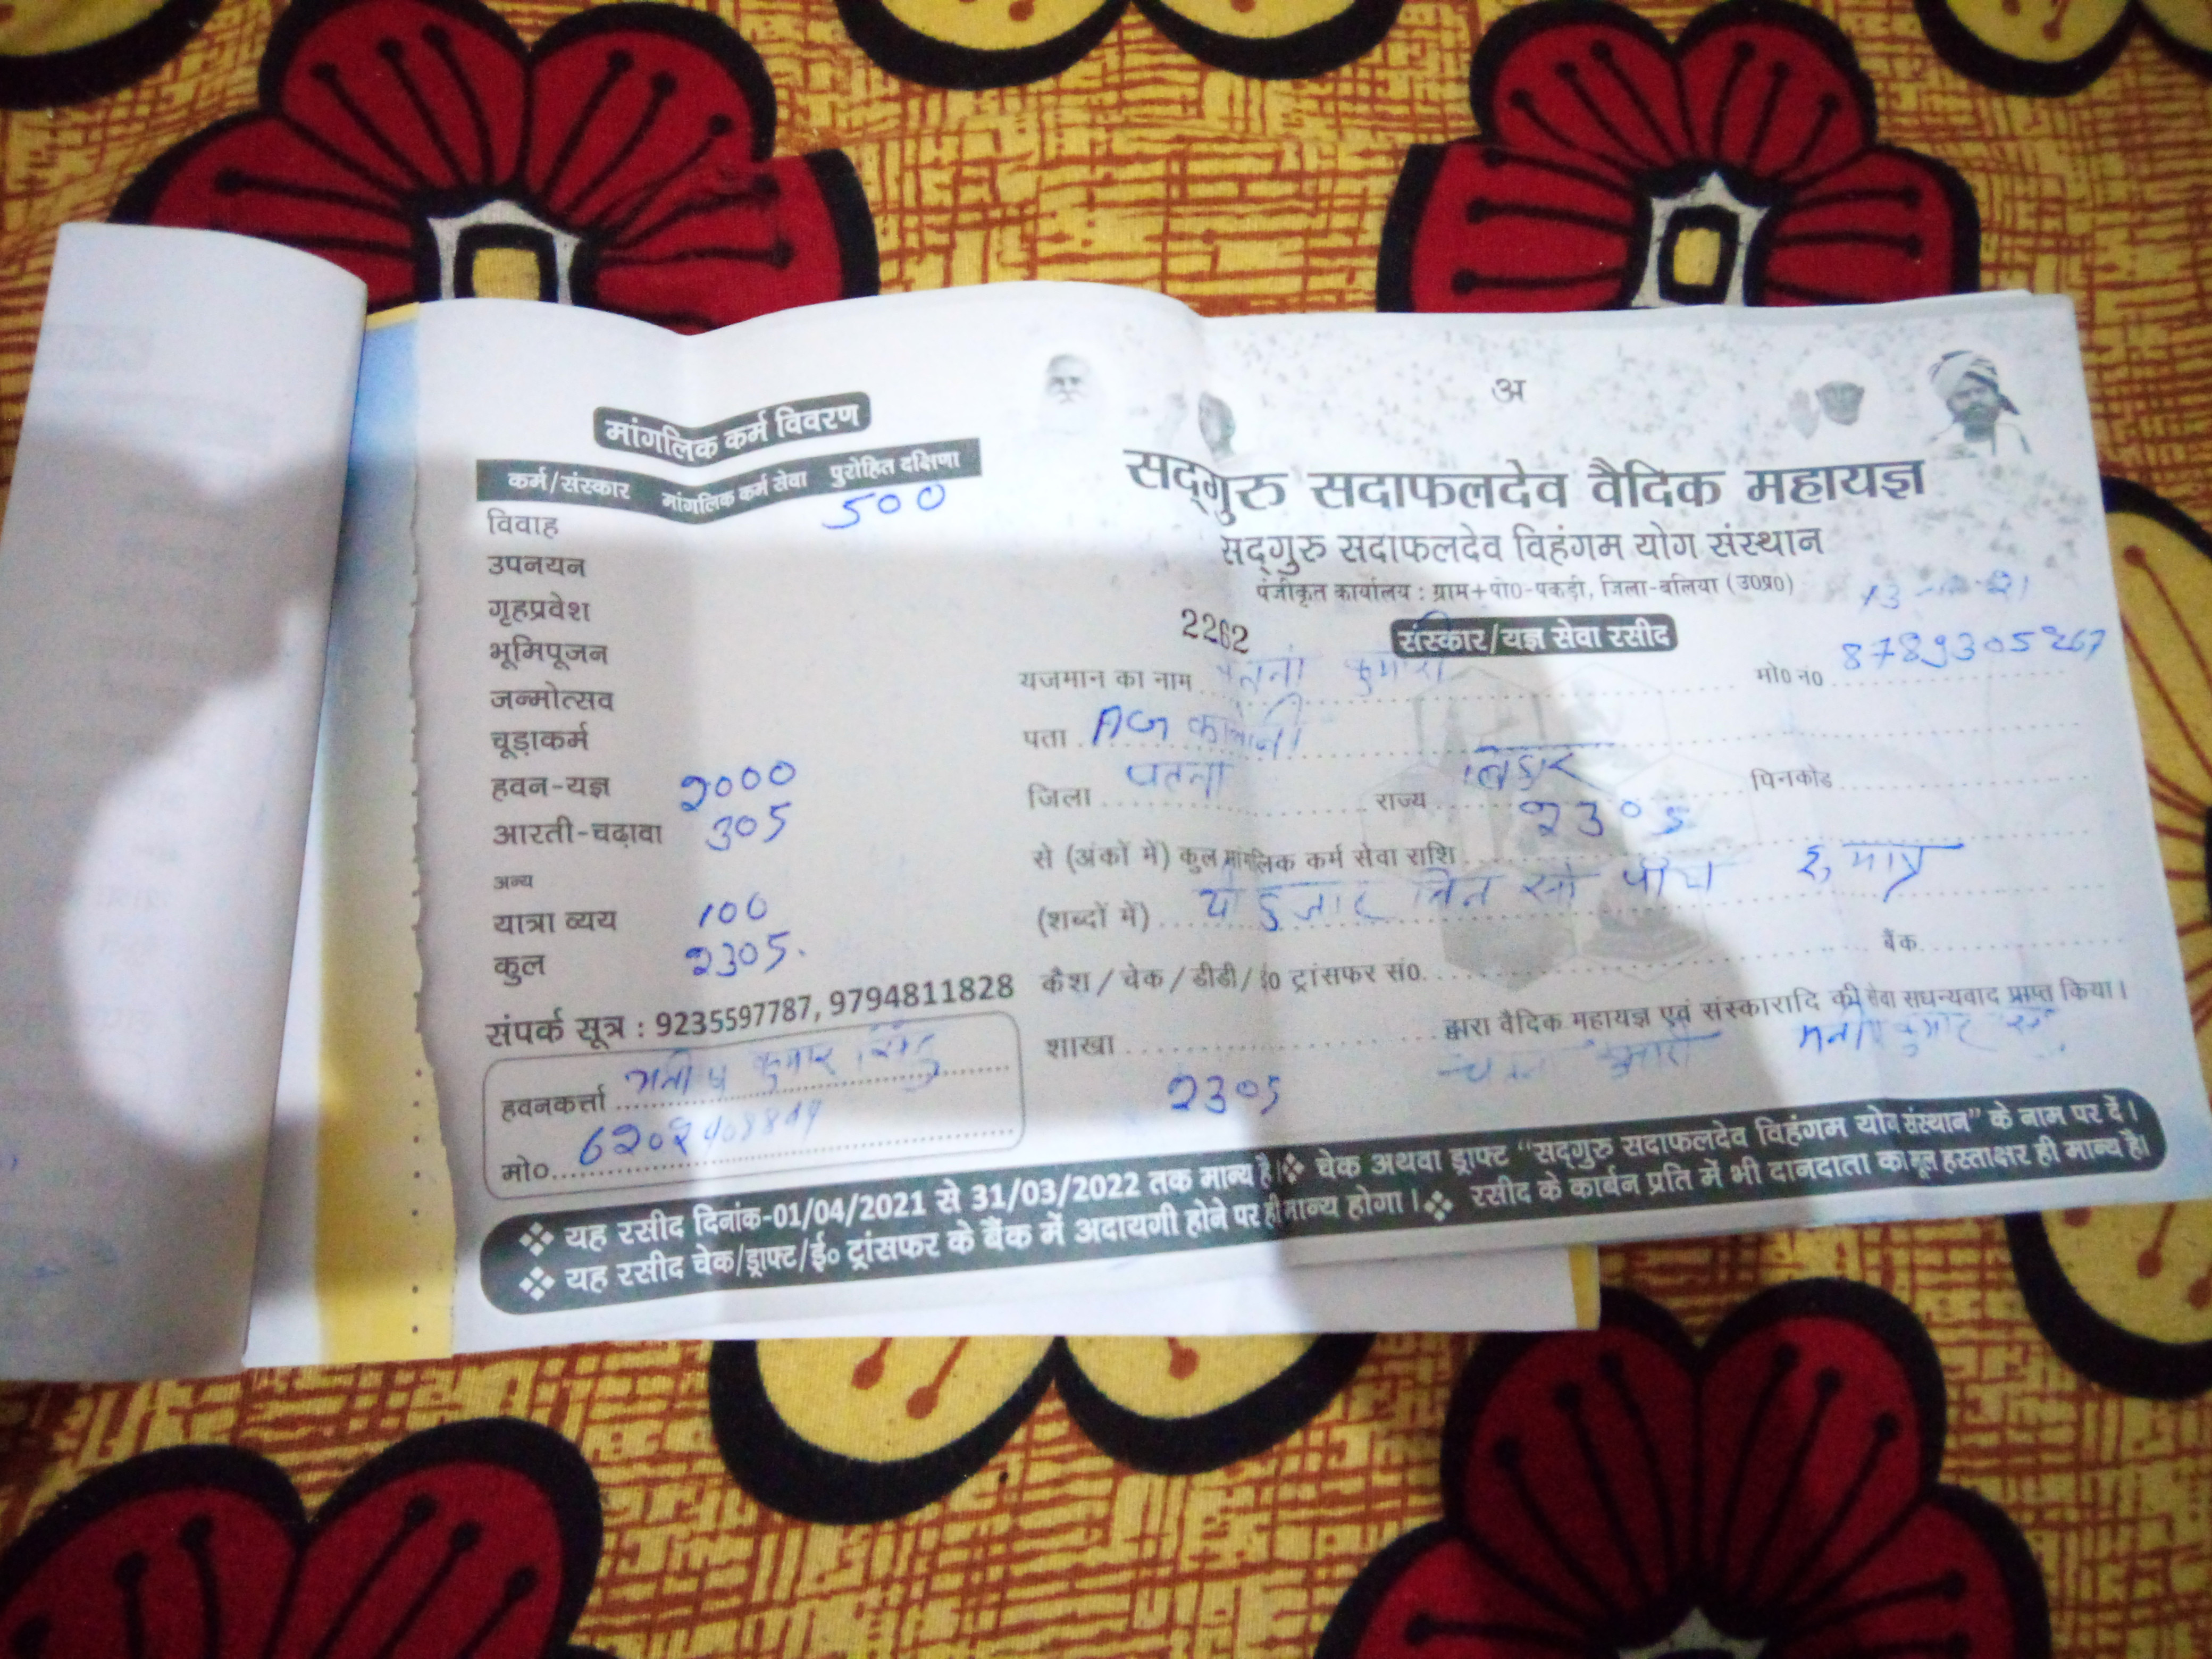 मांगलिक कर्म विवरण
कर्म/संस्कार मांगलिक कर्म सेवा पुरोहित दक्षिणा
विवाह 500
उपनयन
गृहप्रवेश
भूमिपूजन
जन्मोत्सव
चूड़ाकर्म
हवन-यज्ञ 2000
आरती-चढ़ावा 305
अन्य
यात्रा व्यय 100
कुल 2305.
संपर्क सूत्र : 9235597787, 9794811828
हवनकर्त्ता कुमार
मो०
अ
सद्गुरु सदाफलदेव वैदिक महायज्ञ
सद्गुरु सदाफलदेव विहंगम योग संस्थान
पंजीकृत कार्यालय : ग्राम+पो0-पकड़ी, जिला-बलिया (उ0प्र0)
2262 संस्कार/यज्ञ सेवा रसीद
यजमान का नाम कुमारी मो0 नं0 8789305267
पता AG कालोनी
जिला पटना राज्य बिहार पिनकोड
से (अंकों में) कुल मांगलिक कर्म सेवा राशि 2305
(शब्दों में) दो हजार तिन सौ पांच रु, मात्र
कैश / चेक / डीडी/ ई0 ट्रांसफर सं0. बैंक
शाखा द्वारा वैदिक महायज्ञ एवं संस्कारादि की सेवा सधन्यवाद प्राप्त किया।
2305 कुमारी कुमार
❖ यह रसीद दिनांक-01/04/2021 से 31/03/2022 तक मान्य है।❖ चेक अथवा ड्राफ्ट "सद्गुरु सदाफलदेव विहंगम योग संस्थान" के नाम पर दें।
❖ यह रसीद चेक/ड्राफ्ट/ई० ट्रांसफर के बैंक में अदायगी होने पर ही मान्य होगा। ❖ रसीद के कार्बन प्रति में भी दानदाता का मूल हस्ताक्षर ही मान्य है।